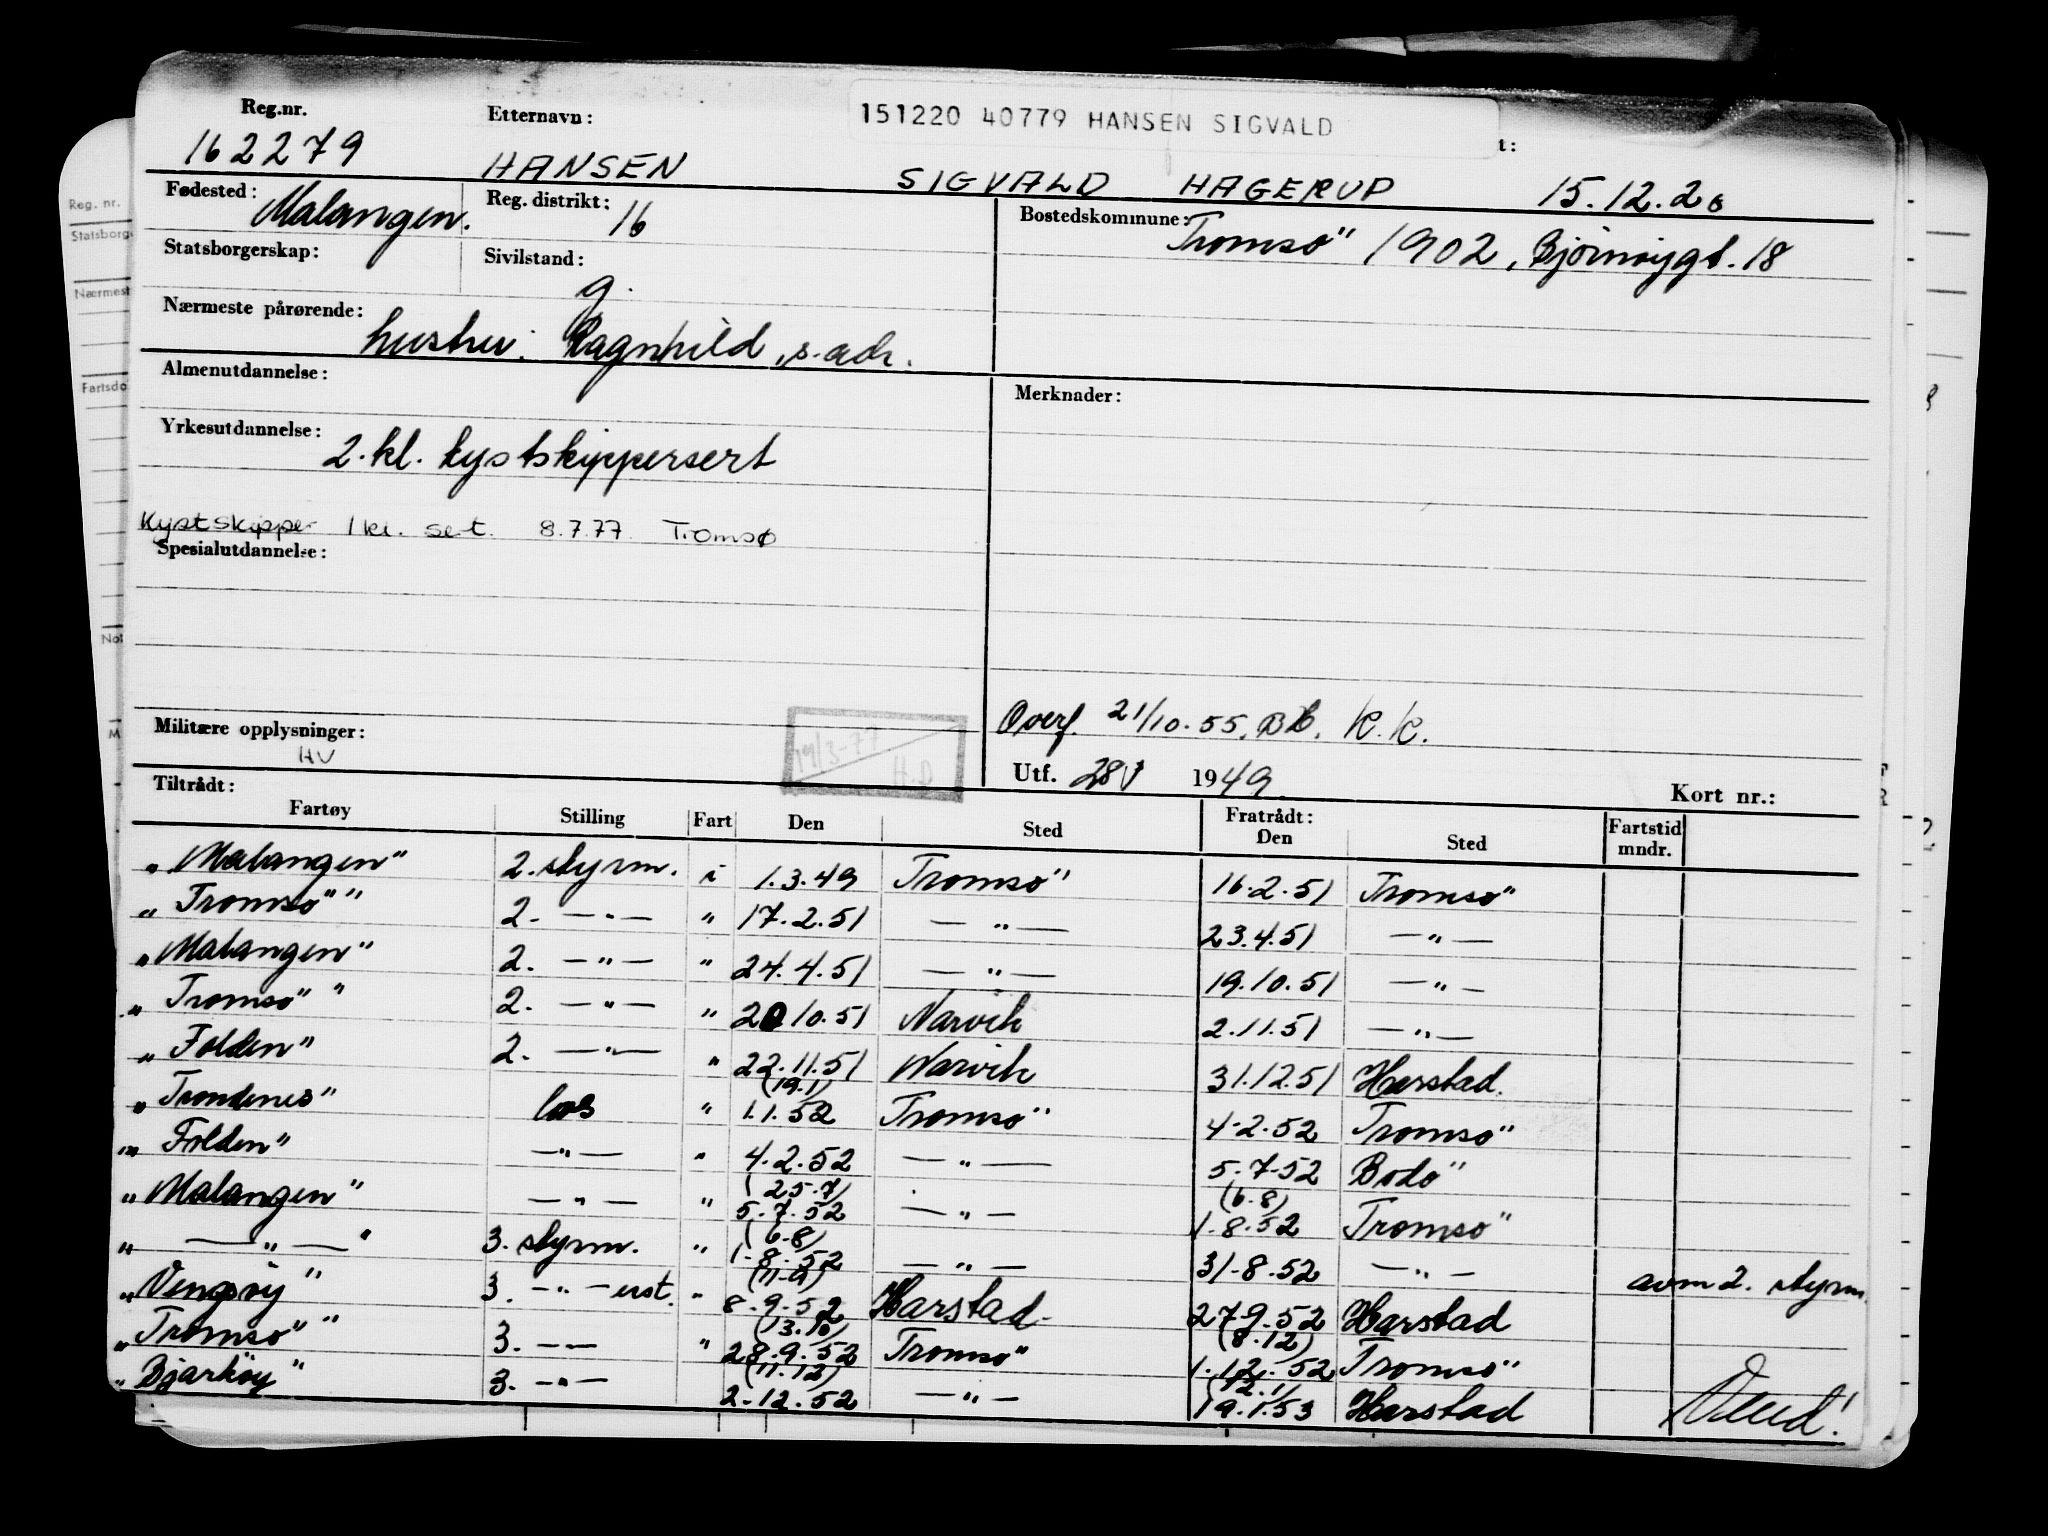 Reg.nr. Etternavn: 151220 40779 HANSEN SIGVALD t:
162279 HANSEN SIGVALD HAGERUP 15.12.20
Fødested: Malangen. Reg. distrikt: 16 Bostedskommune: Tromsö 1902, Bjørnøygt. 18
Statsborgerskap: Sivilstand: g.
Nærmeste pårørende: hustru: Ragnhild, s. adr.
Almenutdannelse: Merknader:
Yrkesutdannelse: 2. kl. kystskippersert
Kystskipper 1 kl. sert. 8.7.77 Tromsø
Spesialutdannelse:
Overf. 21/10.55. Bb. K.K.
Militære opplysninger: HV 19/3-77 H.D
Utf. 28/1 1949 Kort nr.:
Tiltrådt: Fratrådt: Fartstid
Fartøy Stilling Fart Den Sted Den Sted mndr.
"Malangen" 2. styrm. i 1.3.49 Tromsö 16.2.51 Tromsö
"Tromsö" 2. —"— " 17.2.51 —"— 23.4.51 —"—
"Malangen" 2. —"— " 24.4.51 —"— 19.10.51 —"—
"Tromsö" 2. —"— " 20.10.51 Narvik 2.11.51 —"—
"Folden" 2. —"— " 22.11.51 Narvik 31.12.51 Harstad.
"Trondenes" los " (19.1) 1.1.52 Tromsö 4.2.52 Tromsö
"Folden" —"— " 4.2.52 —"— 5.7.52 Bodö
"Malangen" —"— " (25.7) 5.7.52 —"— (6.8) 1.8.52 Tromsö
" —"— " 3. styrm. " (6.8) 1.8.52 —"— 31.8.52 —"— avm 2. styrm.
"Vengsöy" 3. —"— ust. " (11.9) 8.9.52 Harstad 27.9.52 Harstad
"Tromsö" 3. —"— " (13.10) 28.9.52 Tromsö (8.12) 1.12.52 Tromsö
"Bjarköy" 3. —"— (11.12) 2.12.52 —"— (12.1) 19.1.53 Harstad Vend!
Reg. nr.
Statsborge
Nærmest
Fartsdo
Not
M